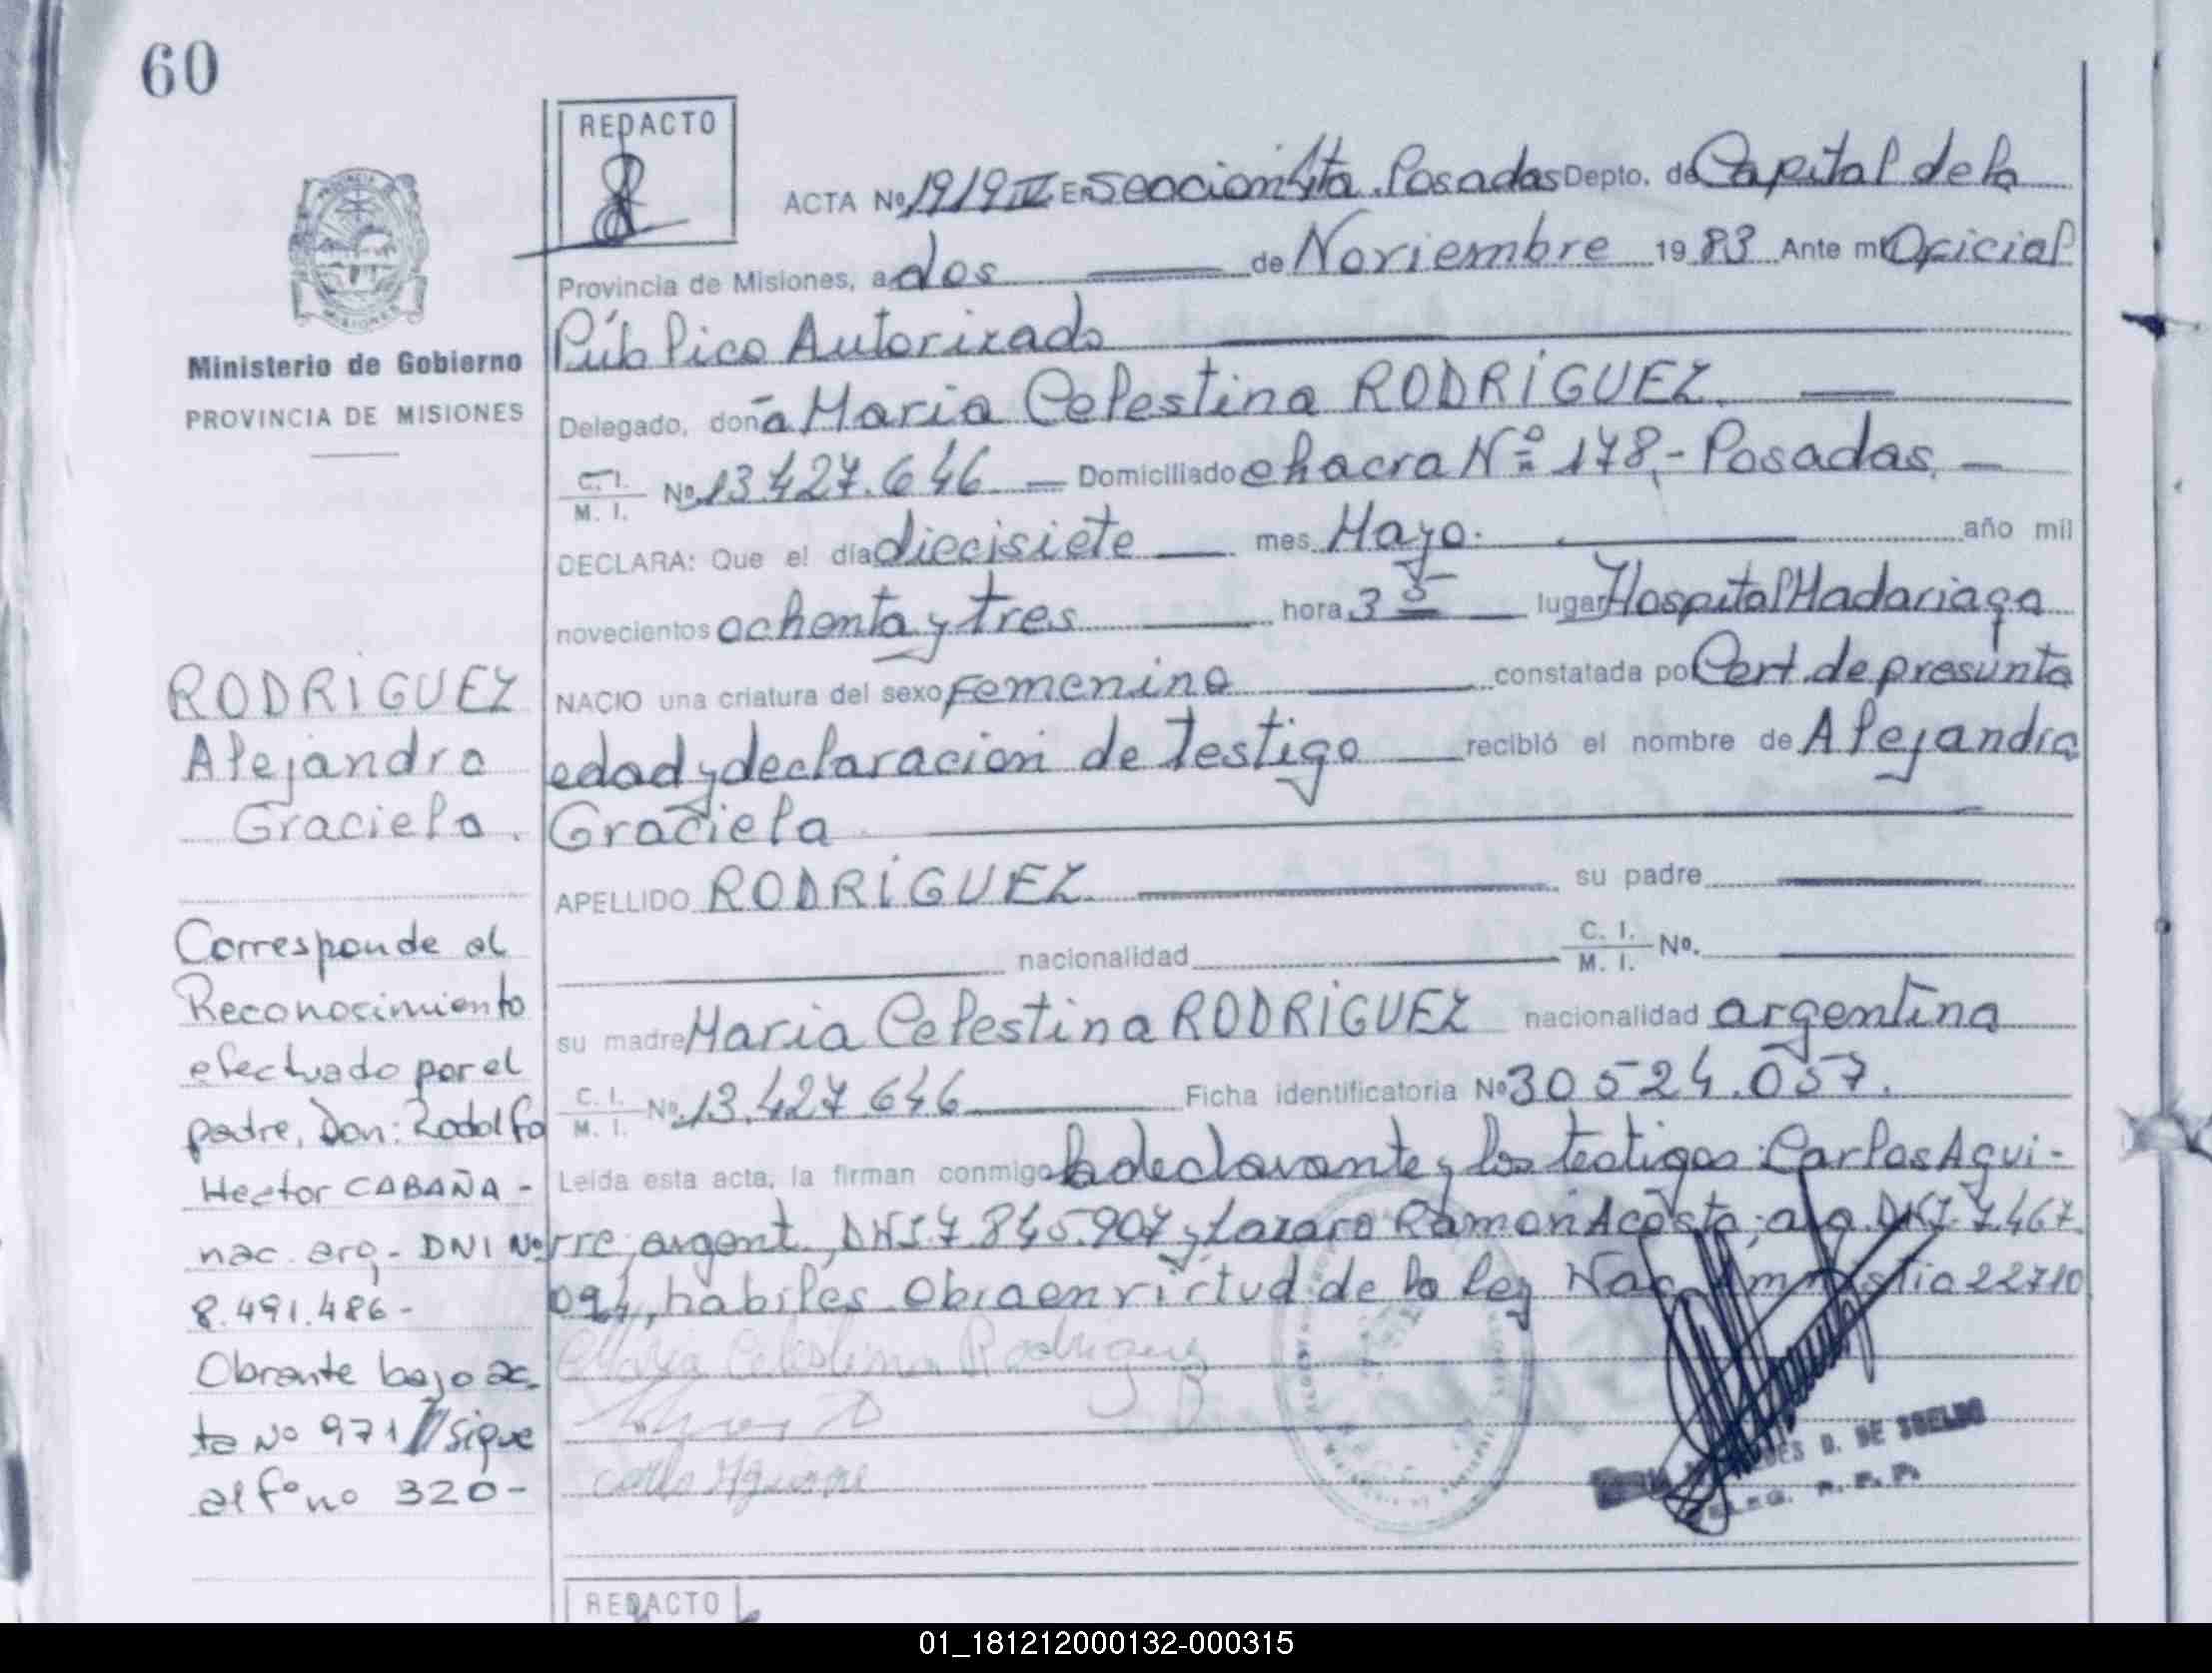 60
REDACTO
ACTA Nº 1919 IV En Seccion 5ta. Posadas Depto. de Capital de la
Provincia de Misiones, a dos de Noviembre 1983 Ante mi Oficial
Público Autorizado
Ministerio de Gobierno
PROVINCIA DE MISIONES
Delegado, doña Maria Celestina RODRÍGUEZ.
C. I. / M. I. Nº 13.427.646 Domiciliado chacra Nº 178,- Posadas.
DECLARA: Que el día diecisiete mes Mayo. año mil
novecientos ochenta y tres hora 3 5 lugar Hospital Madariaga
NACIO una criatura del sexo femenino constatada por Cert. de presunta
edad y declaracion de testigo recibió el nombre de Alejandra
Graciela
APELLIDO RODRÍGUEZ. su padre
nacionalidad C. I. / M. I. Nº.
su madre Maria Celestina RODRÍGUEZ nacionalidad argentina
C. I. / M. I. Nº 13.427.646 Ficha identificatoria Nº 30524.057.
Leída esta acta, la firman conmigo la declarante y los testigos: Carlos Agui-
rre, argent., DNI 7.845.907 y Lazaro Ramon Acosta, arg. DNI. 7.467
094, habiles. Obra en virtud de la ley Nac. Amnistia 22710
Maria Celestina Rodriguez
Carlos Aguirre
D. DE SOTELO
RODRIGUEZ
Alejandra
Graciela.
Corresponde al
Reconocimiento
efectuado por el
padre, Don: Rodolfo
Hector CABAÑA -
nac. arg. - DNI Nº
8.491.486-
Obrante bajo ac-
ta Nº 971 // sigue
al fº no 320-
REDACTO
01_181212000132-000315